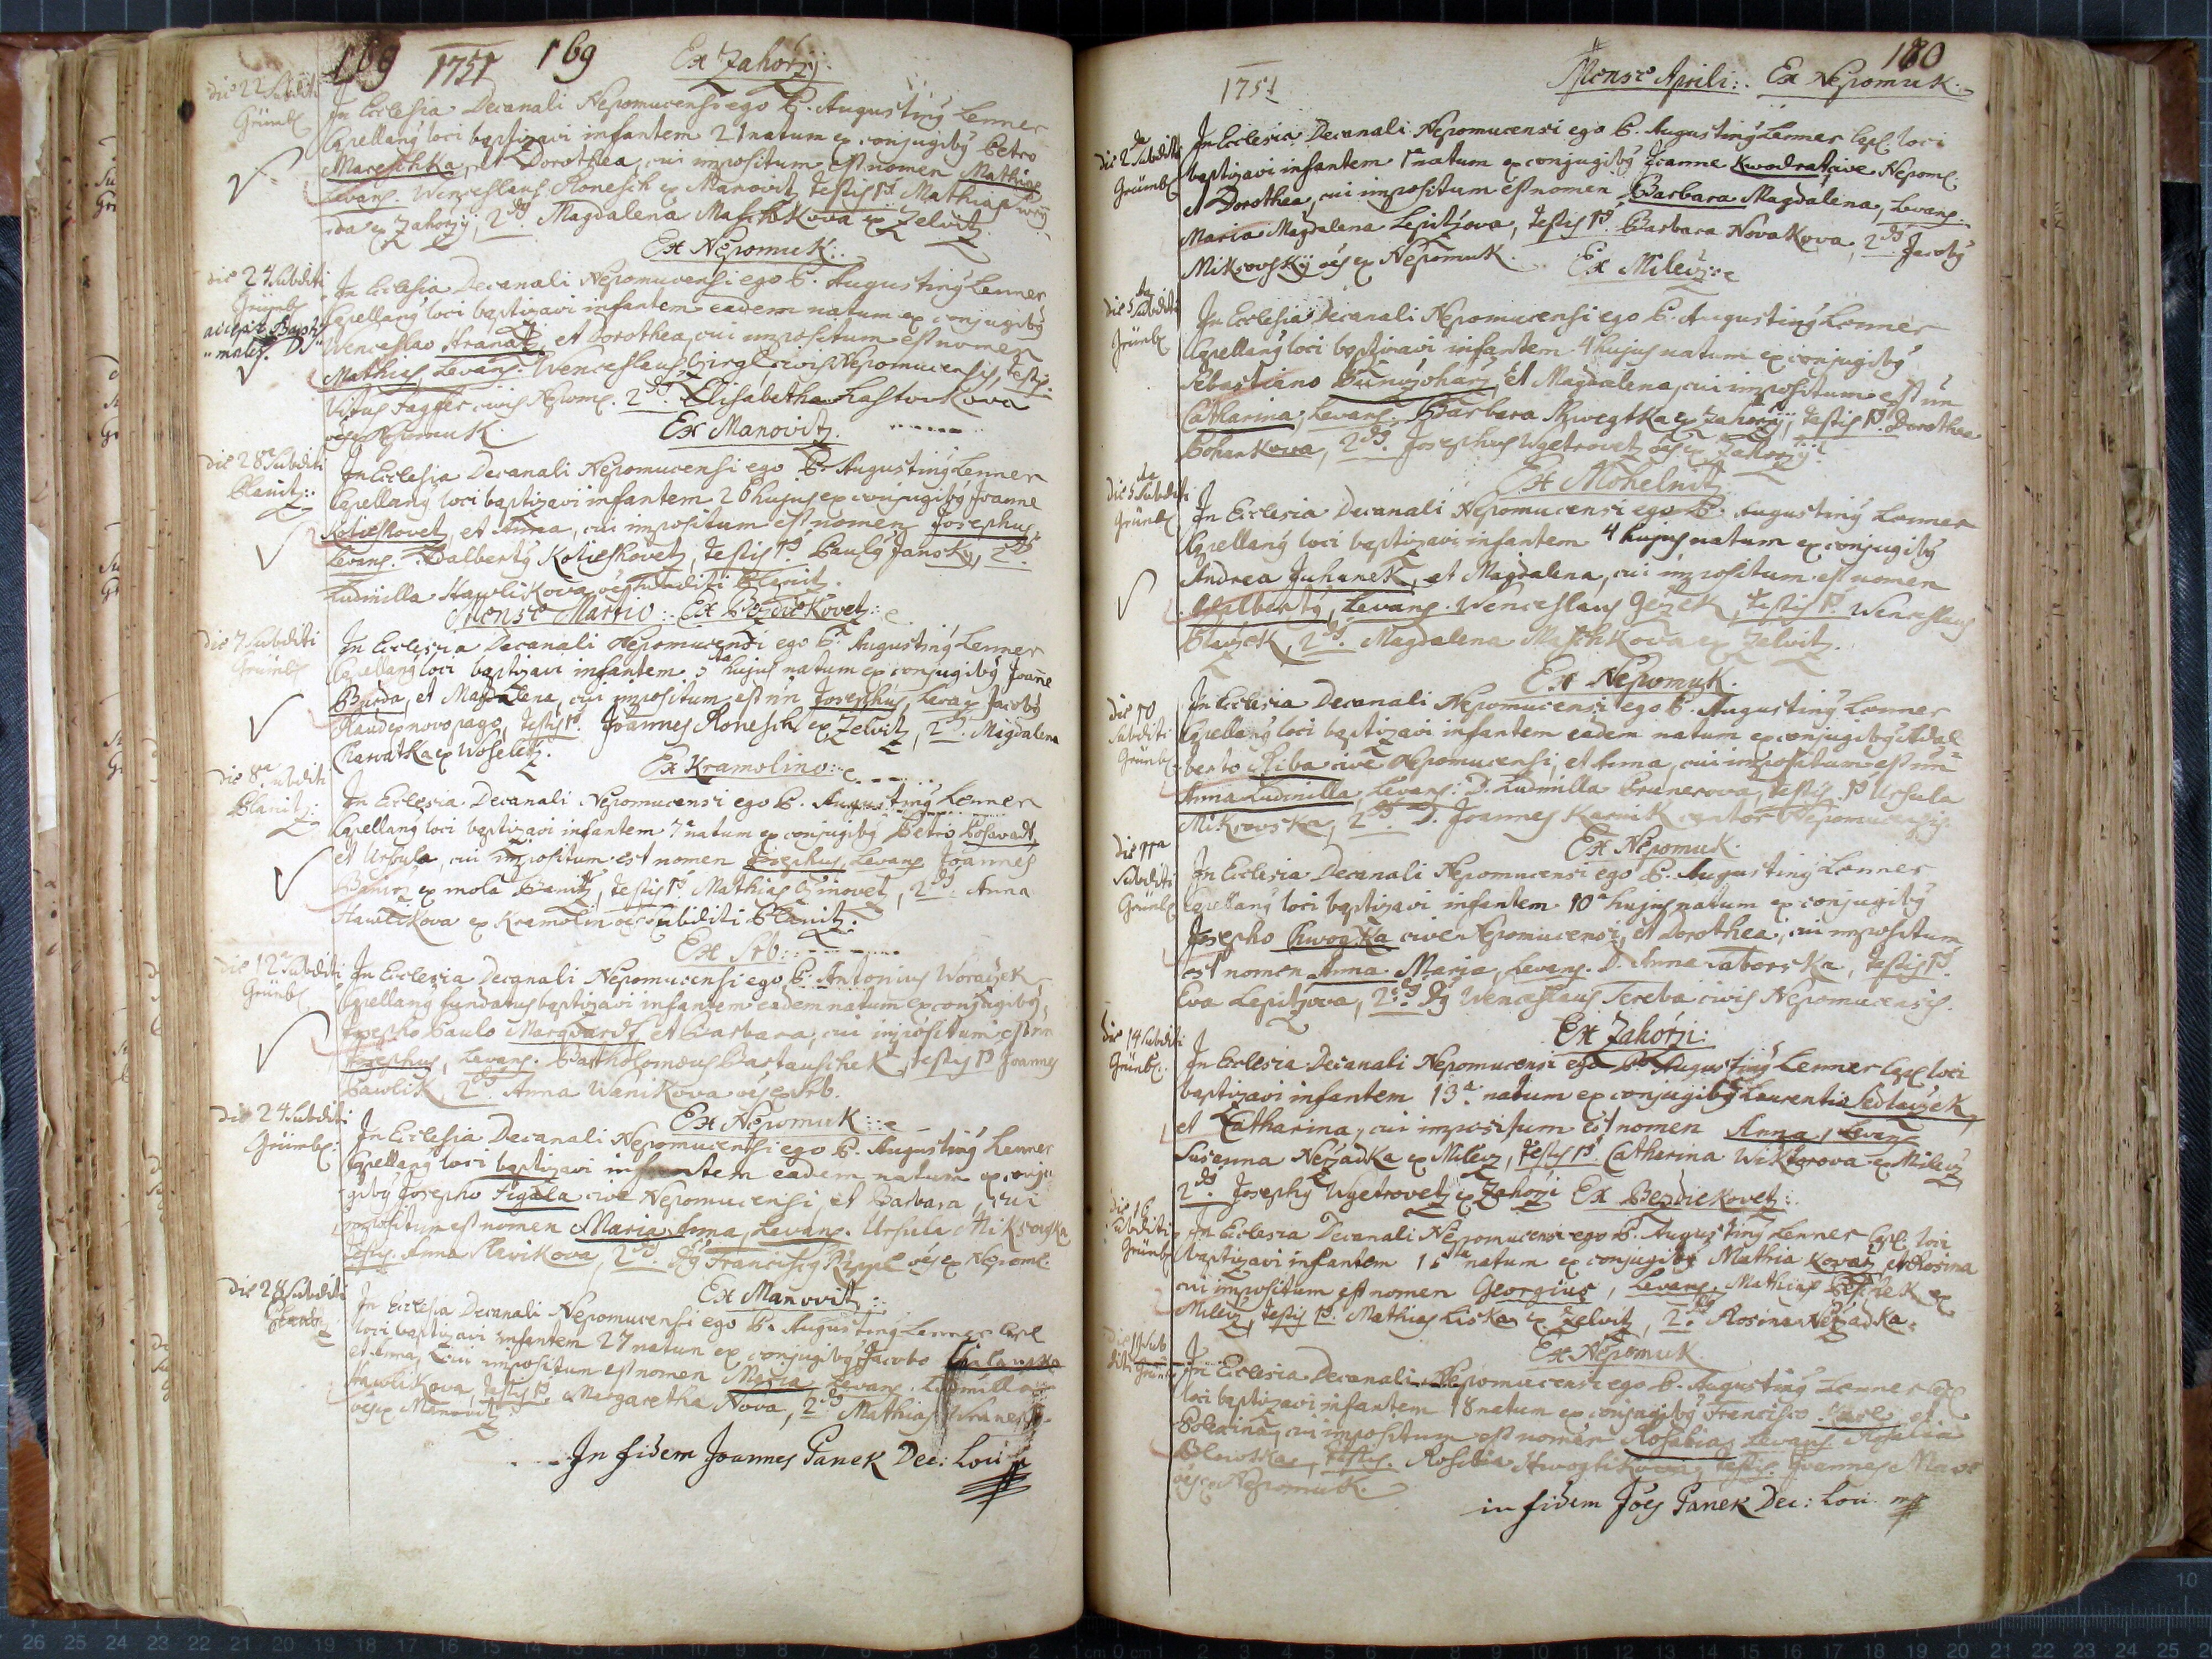 169 1751 169 Ex Zahorzy.
die 22 Subditi Grünb.
In Ecclesia Decanali Nepomucensi ego P. Augustinÿ Lenner
Capellanÿ loci baptizavi infantem 21 natum ex conjugibÿ Petro
Mareschka, et Dorothea, cui impositum est nomen Mathias
Levans. Wenceslaus Ronesch ex Manovitz, testis 1ꝰ Mathias
ex Zahorzy, 2dꝰ. Magdalena Maschkova ex Zelvitz.
Ex Nepomuk:
die 24 Subditi Grünb.
In Ecclesia Decanali Nepomucensi ego P. Augustinÿ Lenner
Capellanÿ loci baptizavi infantem eadem natum ex conjugibÿ
Wenceslao Hranatz, et Dorothea, cui impositum est nomen
Mathias, Levans. Wenceslaus civis Nepomucensis, testis
Vitus civis Nepom. 2dꝰ. Elisabetha Lastovkova
ex Nepomuk
Ex Manovitz.
die 28 Subditi Planitz:
In Ecclesia Decanali Nepomucensi ego P. Augustinÿ Lenner
Capellanÿ loci baptizavi infantem 26 hujus ex conjugibÿ Joanne
Kotieschovetz, et Anna, cui impositum est nomen Josephus,
Levans. Adalbertÿ Kotieschovetz, testis 1ꝰ Paulÿ Jansky, 2dꝰ.
Ludmilla Hawlikova subditi Planitz.
Mense Martio: Ex Bezdiekovetz:
die 7 Subditi Grünb.
In Ecclesia Decanali Nepomucensi ego P. Augustinÿ Lenner
Capellanÿ loci baptizavi infantem 5ta hujus natum ex conjugibÿ Joanne
Burda, et Magdalena, cui impositum est nn Josephus, Levans Jacobÿ
ex novo pago, testis 1ꝰ. Joannes Ronesch ex Zelvitz, 2dꝰ. Magdalena
Charvatka ex Woseletz.
Ex Kramolino:
die 8a Subditi Planitz:
In Ecclesia Decanali Nepomucensi ego P. Augustinÿ Lenner
Capellanÿ loci baptizavi infantem 7a natum ex conjugibÿ Petro Posavadt
et Ursula, cui impositum est nomen Josephus, Levans Joannes
ex mola testis 1ꝰ Mathias 2dꝰ. Anna
Hawlikova ex Kramolin subditi Planitz:
Ex Srb:
die 12a Subditi Grünb.
In Ecclesia Decanali Nepomucensi ego P. Antonius Woraczek
Capellanÿ fundatus baptizavi infantem eadem natum ex conjugibÿ,
Josepho Paulo Marquardt et Barbara, cui impositum est nn
Josephus, Levans. Bartholomæus Bartauschek, testis 1ꝰ Joannes
Pawlik, 2dꝰ. Anna Wanikova ex Srb.
Ex Nepomuk:
die 24 Subditi Grünb:
In Ecclesia Decanali Nepomucensi ego P. Augustinÿ Lenner
Capellanÿ loci baptizavi infantem eadem natum ex conju-
gibÿ Josepho Figala cive Nepomucensi, et Barbara, cui
impositum est nomen Maria Anna, Levans. Ursula Miksovska
testis. Anna Slavikova, 2dꝰ. Franciscÿ ex Nepom.
Ex Manovitz:
die 28 Subditi
In Ecclesia Decanali Nepomucensi ego P. Augustinÿ Lenner Capl
loci baptizavi infantem 27 natum ex conjugibÿ Jacobo
et Anna, cui impositum est nomen Maria, Levans. Ludmilla
Hawlikova, testis 1ꝰ Margaretha Nova, 2dꝰ Mathias
ex Manovitz.
In fidem Joannes Panek Dec: Loci
1751 Mense Aprili: Ex Nepomuk. 180
die 2da Subditi Grünb.
In Ecclesia Decanali Nepomucensi ego P. Augustinÿ Lenner Capl. loci
baptizavi infantem 1 natum ex conjugibÿ Joanne Kwodrat cive Nepom.
et Dorothea, cui impositum est nomen Barbara Magdalena, Levans.
Maria Magdalena Lepitzova, testis 1ꝰ. Barbara Novakova, 2dꝰ Jacobÿ
Miksovskÿ ex Nepomuk.
Ex Milecz:
die 5ta Subditi Grünb.
In Ecclesia Decanali Nepomucensi ego P. Augustinÿ Lenner
Capellanÿ loci baptizavi infantem 4 hujus natum ex conjugibÿ
Sebastiano et Magdalena, cui impositum est nn
Catharina, Levans. Barbara ex Zahorzÿ, testis 1ꝰ. Dorothea
2dꝰ. Josephus Wgetrovetz ex Zahorzy.
Ex Mohelnitz
die 5ta Subditi Grünb.
In Ecclesia Decanali Nepomucensi ego P. Augustinÿ Lenner
Capellanÿ loci baptizavi infantem 4 hujus natum ex conjugibÿ
Andrea Juhanek, et Magdalena, cui impositum est nomen
Adalbertÿ, Levans. Wenceslaus Gezek, testis 1ꝰ. Wenceslaus
Blaizek, 2dꝰ. Magdalena Maschkova ex Zelvitz.
Ex Nepomuk.
die 10 Subditi Grünb.
In Ecclesia Decanali Nepomucensi ego P. Augustinÿ Lenner
Capellanÿ loci baptizavi infantem eadem natum ex conjugibÿ Adal-
berto cive Nepomucensi, et Anna, cui impositum est nn
Anna Ludmilla, Levans: D. Ludmilla Prunerova, testis 1ꝰ Ursula
Miksovska, 2dꝰ D. Joannes Karnik cantor Nepomucensis.
Ex Nepomuk.
die 11a Subditi Grünb.
In Ecclesia Decanali Nepomucensi ego P. Augustinÿ Lenner
Capellanÿ loci baptizavi infantem 10a hujus natum ex conjugibÿ
Josepho cive Nepomucensi, et Dorothea, cui impositum
est nomen Anna Maria, Levans. D. Anna Taborska, testis 1ꝰ.
Eva Lepitzova, 2dꝰ Wenceslaus Tereba civis Nepomucensis.
Ex Zahorzi:
die 14 Subditi Grünb.
In Ecclesia Decanali Nepomucensi ego P. Augustinÿ Lenner Capl loci
baptizavi infantem 13a natum ex conjugibÿ Laurentio Sedlaczek,
et Catharina, cui impositum est nomen Anna, Levans
Susanna Nezadka ex Milecz, testis 1ꝰ. Catharina Wiktorova ex Milecz
2dꝰ. Josephÿ Wgetrovetz ex Zahorzi
Ex Bezdiekovetz:
die 16 Subditi Grünb.
In Ecclesia Decanali Nepomucensi ego P. Augustinÿ Lenner Capl. loci
baptizavi infantem natum ex conjugibÿ Mathia Kovarz, et Rosina
cui impositum est nomen Georgius, Levans. Mathias ex
Milecz, testis 1ꝰ. Mathias Liska ex Zelvitz, 2dꝰ Rosina Nezadka.
Ex Nepomuk
die 19 Subditi Grünb.
In Ecclesia Decanali Nepomucensi ego P. Augustinÿ Lenner Capl
loci baptizavi infantem 18 natum ex conjugibÿ Francisco et
Polexina, cui impositum est nomen Rosalia, Levans Rosalia
testis. Rosalia testis. Joannes
ex Nepomuk.
in fidem Joës Panek Dec: Loci mp